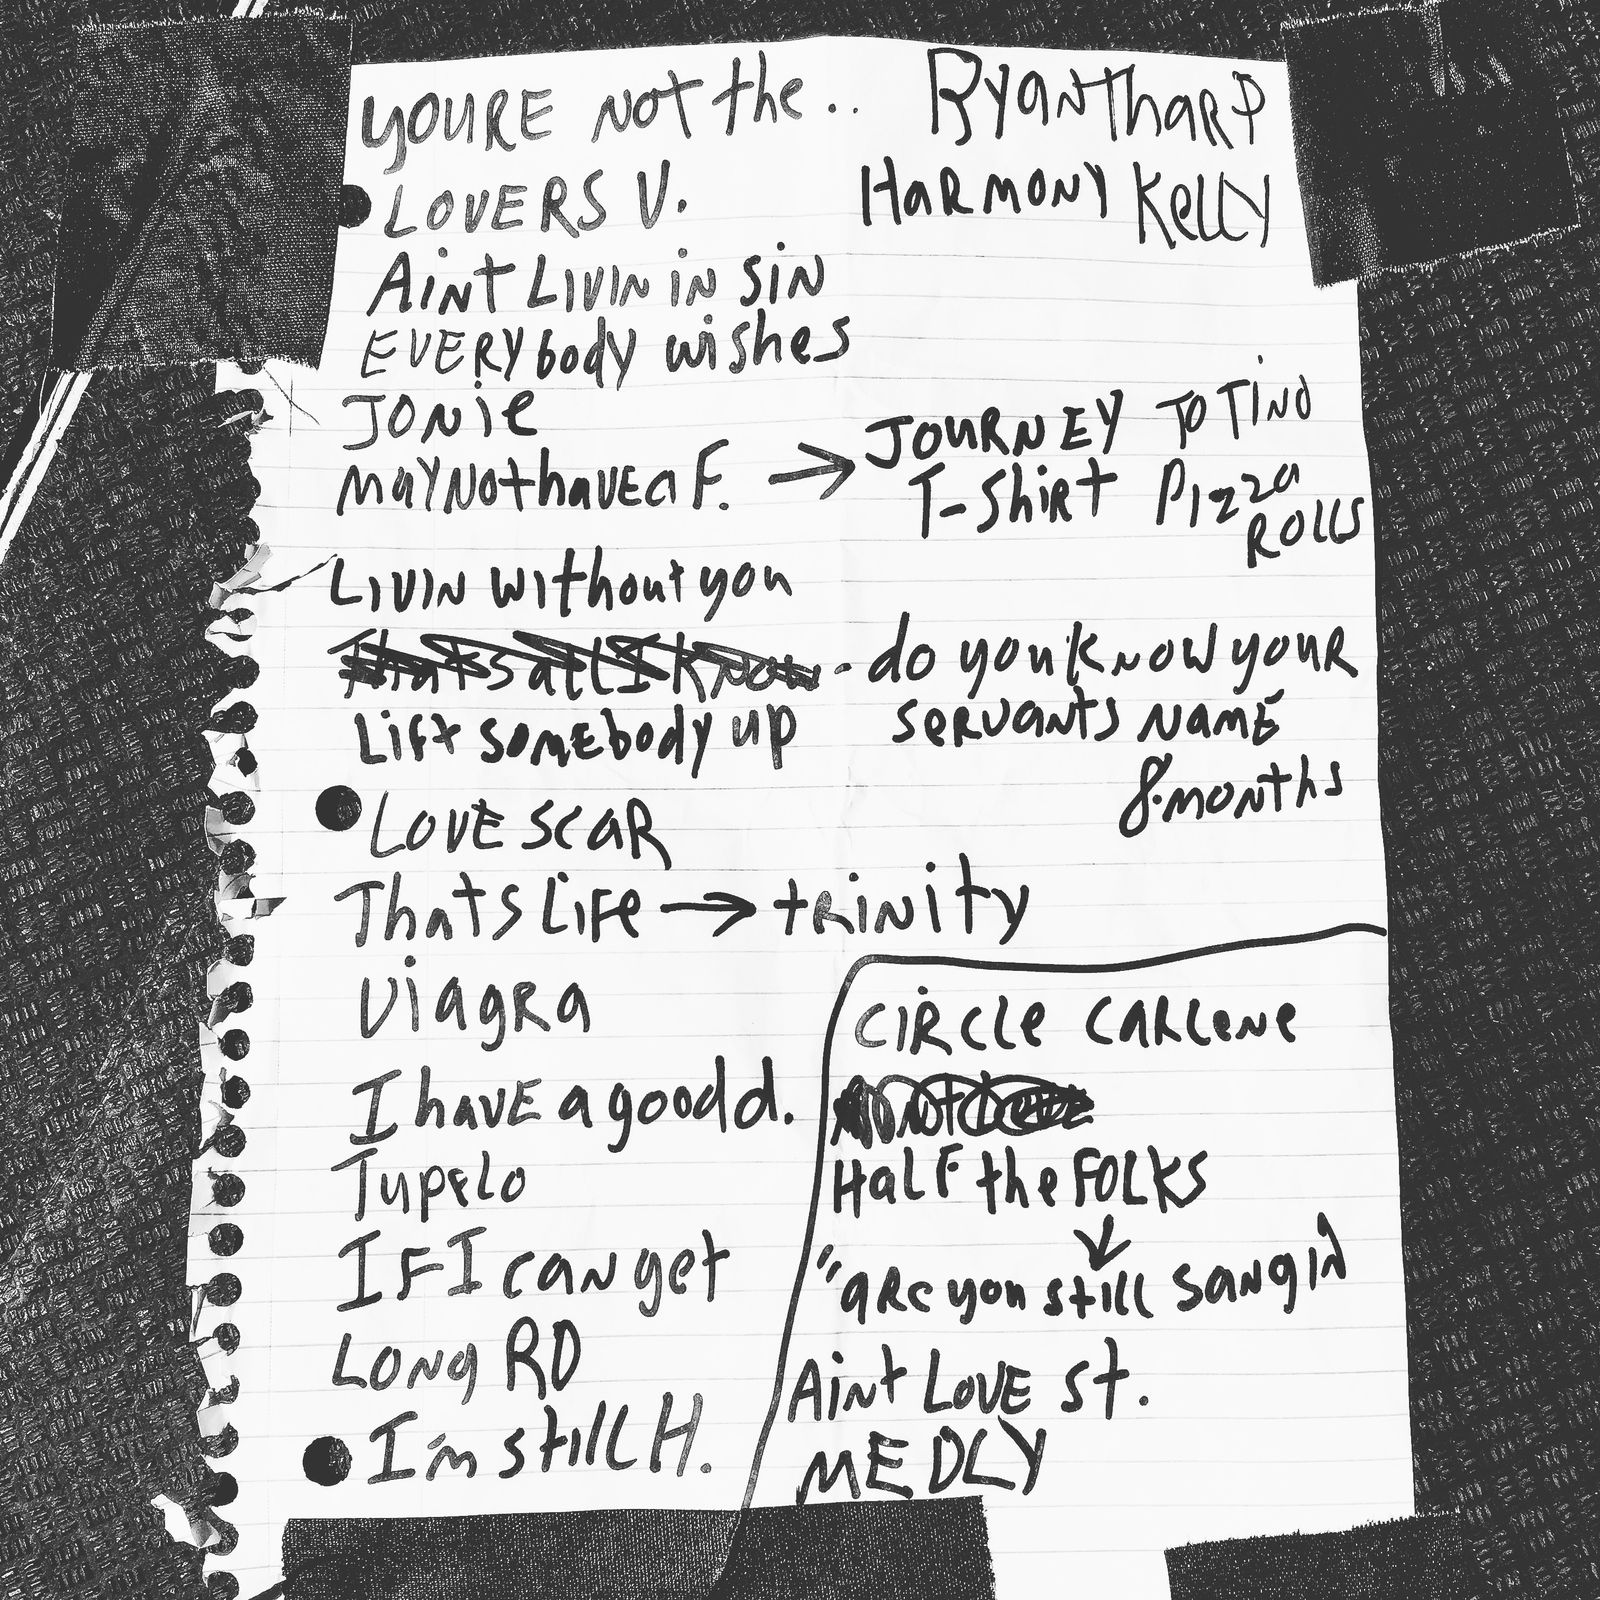 YOURE NOT the ..
RYANTHARP
HARMONY KELLY
LOVERS V.
AiNT LIVIN iN SIN
EVERYbody wishes
JONiE
MAYNOthaVEa F. → JOURNEY TO TINO
T-ShiRt Pizza
ROLLS
LIVIN without you
thats all I know - do you KNOW YOUR
Lift somebody up
SERVANTS NAME
8 MONTHS
LOVE SCAR
Thats LiFe → tRiNity
ViagRa
I haVE a good d.
TUPELO
IF I caN get
LONg RD
I'm still H.
CIRCLE CARLENE
HaLF the FOLKS
↓
"aRe you still SaNgiN
AiNt LOVE St.
MEDLY